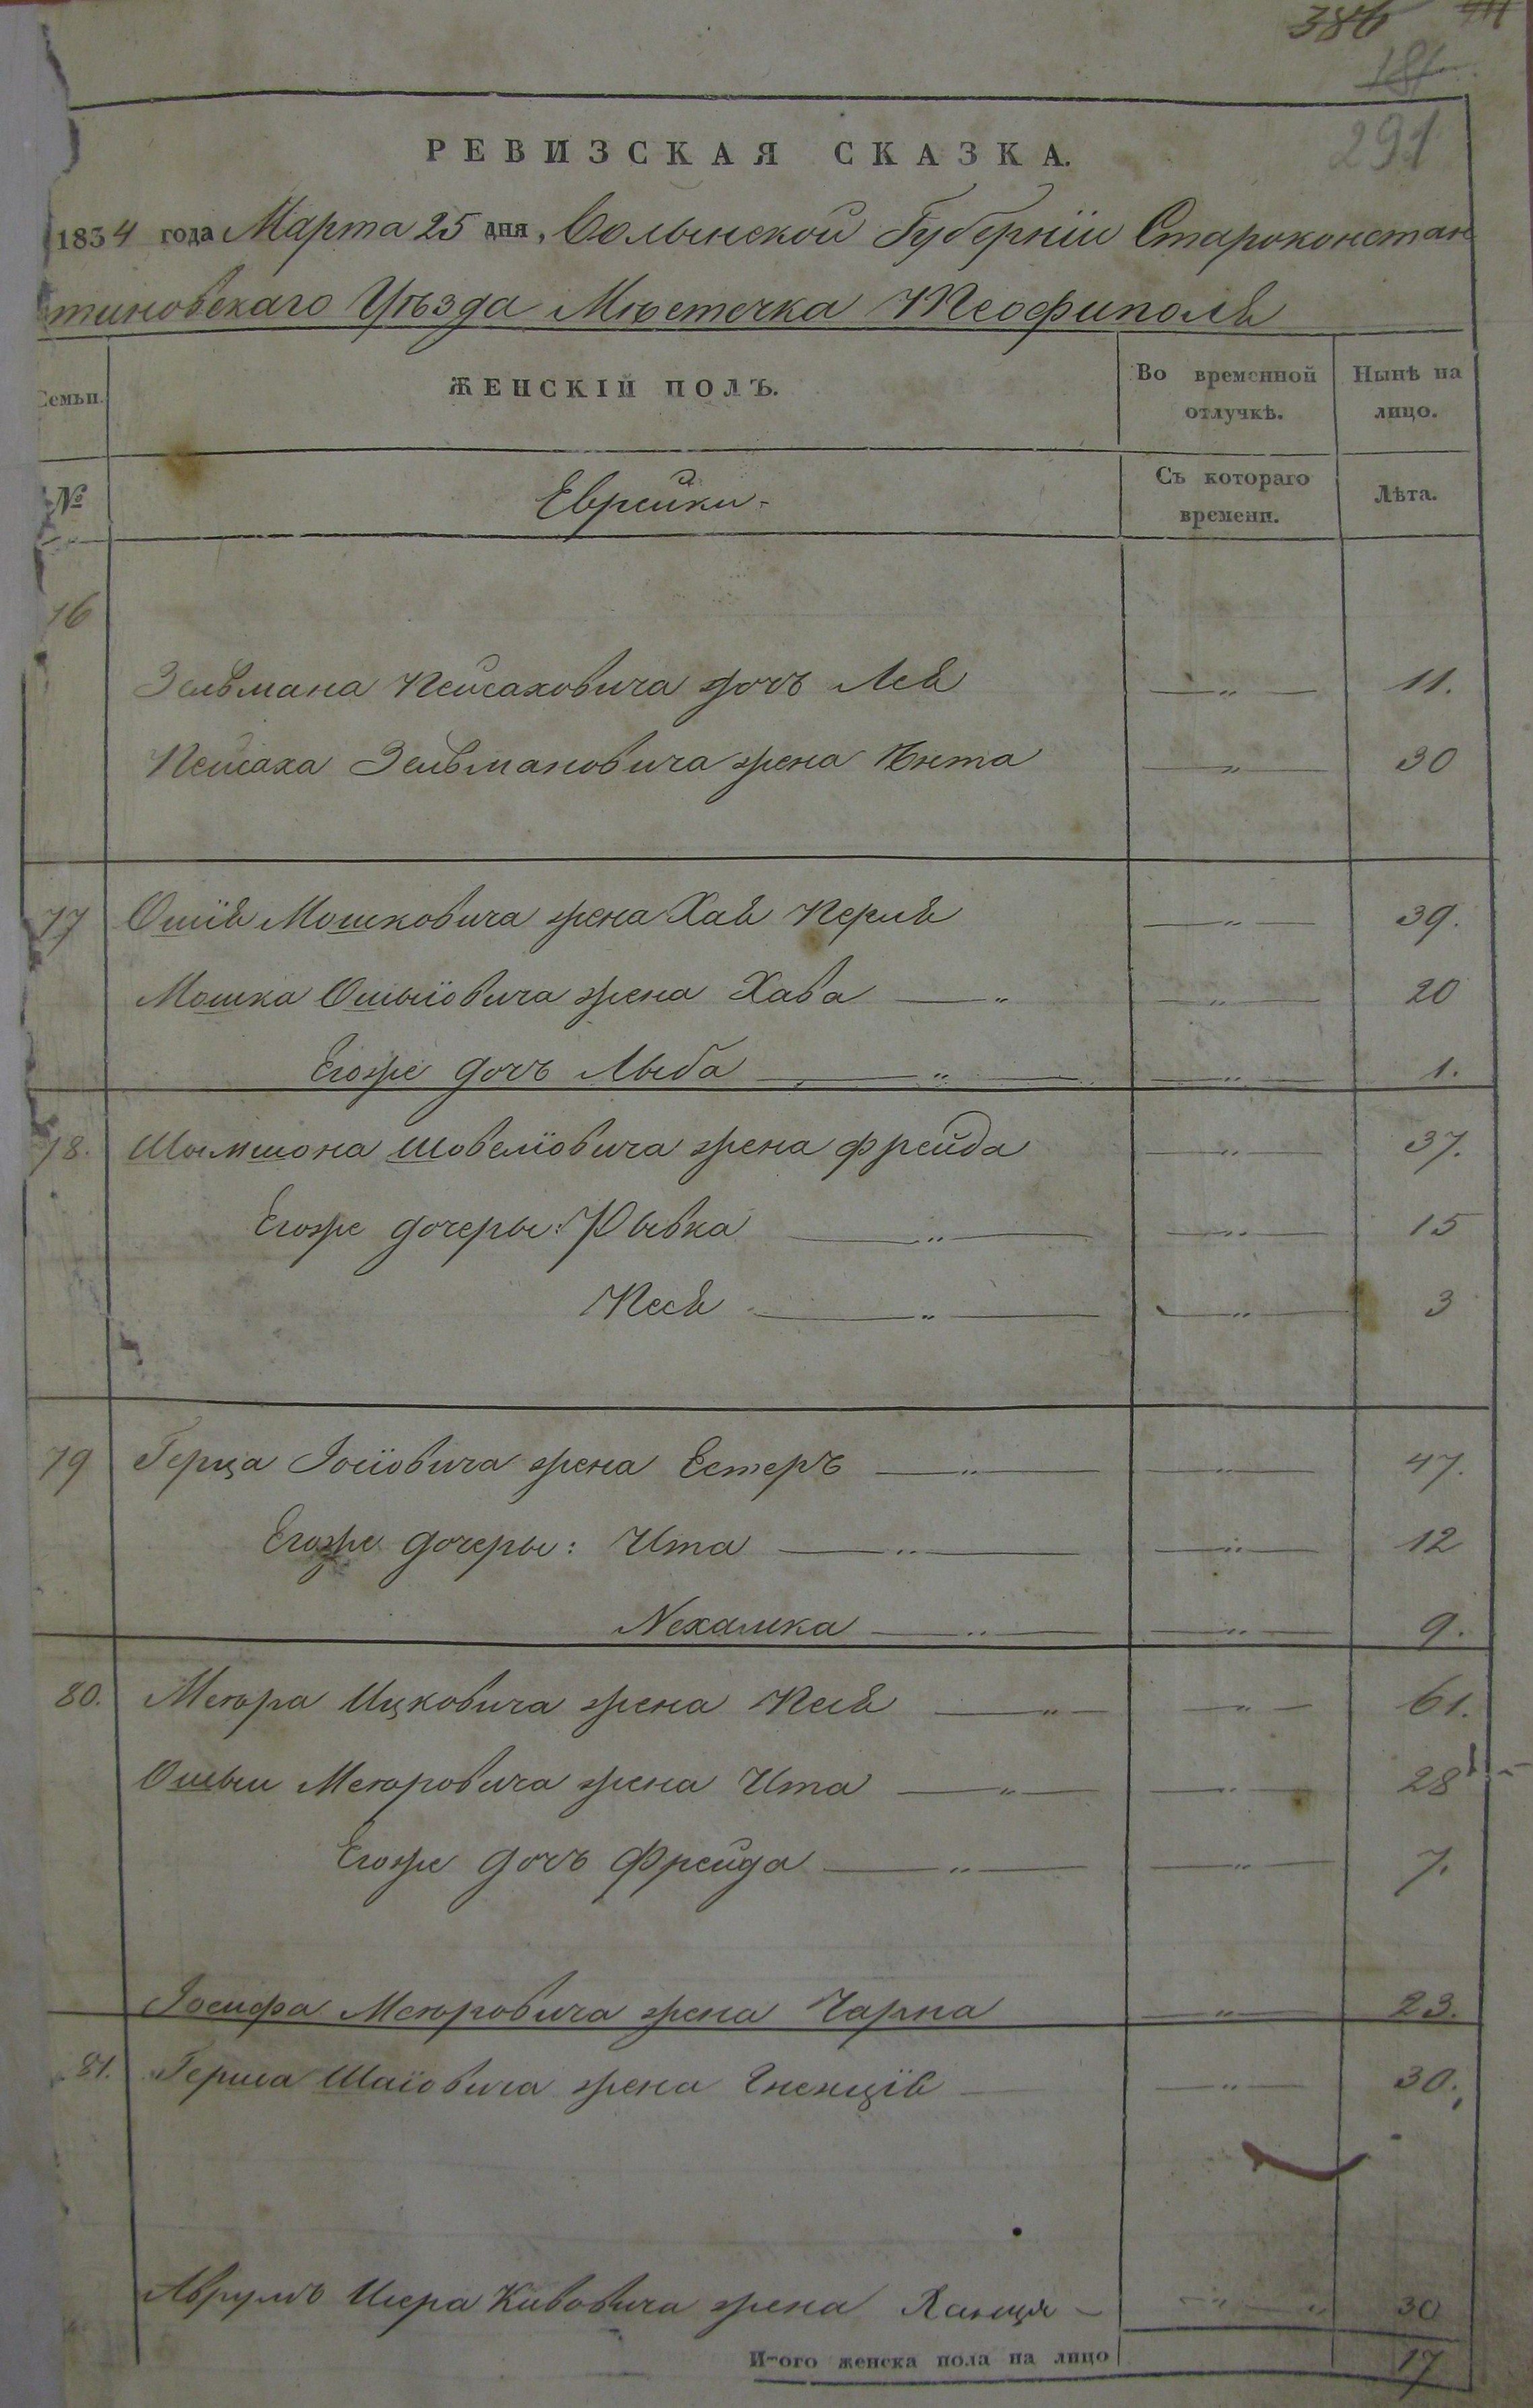 386
181
291
РЕВИЗСКАЯ СКАЗКА.
1834 года Марта 25 дня, Волынской Губернїи Староконстан
тиновскаго Уѣзда Мѣстечка Теофиполѣ
Семьи. ЖЕНСКІЙ ПОЛЪ. Во временной отлучкѣ. Нынѣ на лицо.
№ Еврейки - Съ котораго времени. Лѣта.
76
Зельмана Пейсаховича дочь Лея — „ — 11.
Пейсаха Зельмановича жена Ента — „ — 30
77 Ошїя Мошковича жена Хая Перля — „ — 39.
Мошка Ошыїовича жена Хава — „ — „ — 20
Егоже дочь Лыба — „ — — „ — 1.
78. Шымшона Шовелїовича жена Фрейда — „ — 37.
Егоже дочеры: Рывка — „ — — „ — 15
Песя — „ — — „ — 3
79 Герца Іосїовича жена Естеръ — „ — — „ — 47.
Егоже дочеры: Ита — „ — — „ — 12
Нехамка — „ — — „ — 9.
80. Меюра Ицковича жена Песя — „ — — „ — 61.
Ошыи Меюровича жена Ита — „ — — „ — 28
Егоже дочь Фрейда — „ — — „ — 7.
Іосифа Меюровича жена Чарна — „ — 23.
81. Герша Шаїовича жена — — „ — 30.
Аврумъ Исера Кивовича жена Ханця - — „ — „ 30
Итого женска пола на лицо 17